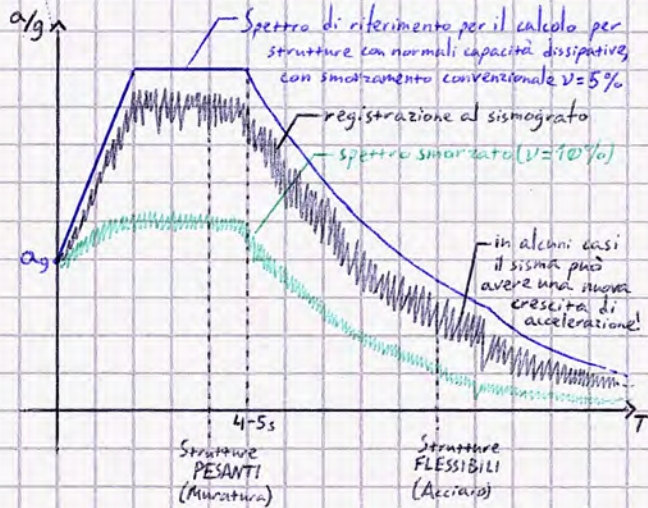 a/g
Spettro di riferimento per il calcolo per
strutture con normali capacità dissipative,
con smorzamento convenzionale ν=5%
registrazione al sismografo
spettro smorzato (ν=10%)
in alcuni casi
il sisma può
avere una nuova
crescita di
accelerazione!
ag
4-5s
T
Strutture
PESANTI
(Muratura)
Strutture
FLESSIBILI
(Acciaio)